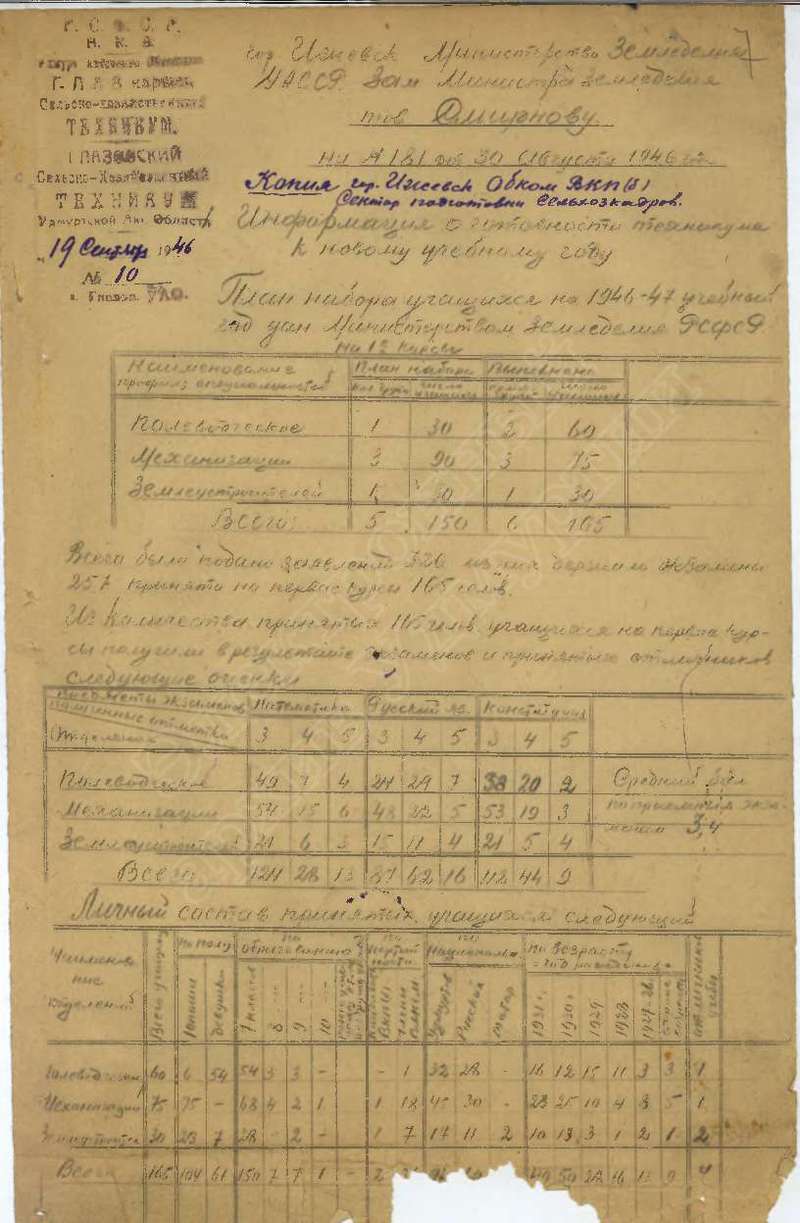 Р. С. Ф. С. Р.
Н. К. З.
Сельско-хозяйственный
ТЕХНИКУМ.
ГЛАЗОВСКИЙ
Сельско-Хозяйственный
ТЕХНИКУМ
Удмуртской Авт. Области
19 Сентябр 1946
№ 10
г. Глазов. УАО.
гор. Ижевск Министерство Земледелия
УАССР Зам Министра Земледелия
тов Смирнову.
На № 181 от 30 Августа 1946 г.
Копия гор. Ижевск Обком ВКП(б)
Сектор подготовки Сельхозкадров.
Информация о готовности техникума
к новому учебному году
План набора учащихся на 1946-47 учебный
год дан Министерством Земледелия РСФСР
на 1е курсы
Наименование План набора Выполнено
число учащихся число учащихся
Полеводческое 1 30 2 60
Механизации 3 90 3 75
Землеустроителей 1 30 1 30
Всего: 5 150 6 165
Всего было подано заявлений 326 из них держали экзамены
257 принято на первые курсы 165 челов.
Из количества принятых 165 челов. учащихся на первые кур-
сы получили в результате экзаменов и принятых отличников
следующие оценки
Предметы экзаменов Математика Русский яз. Конституция
полученные отметки
Отделения 3 4 5 3 4 5 3 4 5
Полеводческое 49 7 4 24 29 7 38 20 2
Механизации 54 15 6 48 22 5 53 19 3
Землеустроителей 21 6 3 15 11 4 21 5 4
Всего 124 28 13 87 62 16 112 44 9
Средний бал
по приемным экза-
менам 3,4
Личный состав принятых учащихся следующий
Наименова-
ние
отделений
Всего учащихся
по полу
юноши
девушки
по образованию
7 классов
8
9
10
по партийности
ВКП(б)
Члены ВЛКСМ
по национальн.
Удмуртов
Русских
татар
по возрасту
год рождения
1931 г.
1930 г.
1929
1928
1927-26
отличников учебы
Полеводческое 60 6 54 54 3 3 - - 1 32 28 - 16 12 15 11 3 3 1
Механизации 75 75 - 68 4 2 1 1 18 45 30 - 23 25 10 4 8 5 1
Землеустроит. 30 23 7 28 - 2 - 1 7 17 11 2 10 13 3 1 2 1 2
Всего 165 104 61 150 7 7 1 - 2 49 50 28 16 13 9 4